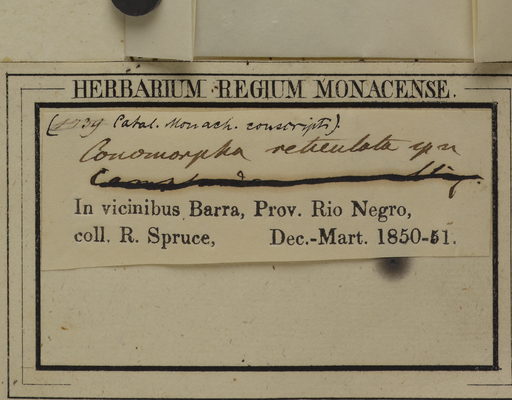 HERBARIUM REGIUM MONACENSE.
(1739 Catal. Monach. conscripti).
Conomorpha reticulata
In vicinibus Barra, Prov. Rio Negro,
coll. R. Spruce, Dec.-Mart. 1850-51.